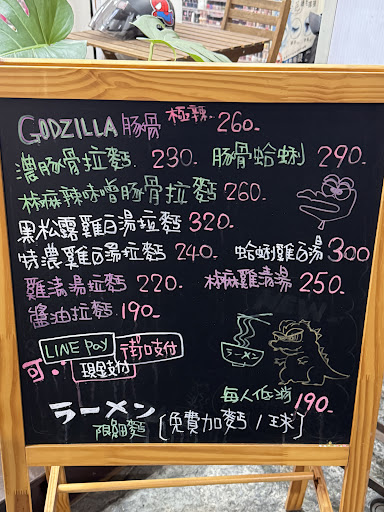 GODZILLA 豚骨 極辣 260-
濃豚骨拉麵 230- 豚骨蛤蜊 290-
椒麻辣味噌豚骨拉麵 260-
黑松露雞白湯拉麵 320-
特濃雞白湯拉麵 240- 蛤蜊雞白湯 300
雞清湯拉麵 220- 椒麻雞清湯 250-
醬油拉麵 190-
可.. LINE Pay 街口支付
現金支付
ラーメン
每人低消 190-
ラーメン
限細麵 (免費加麵 / 球)